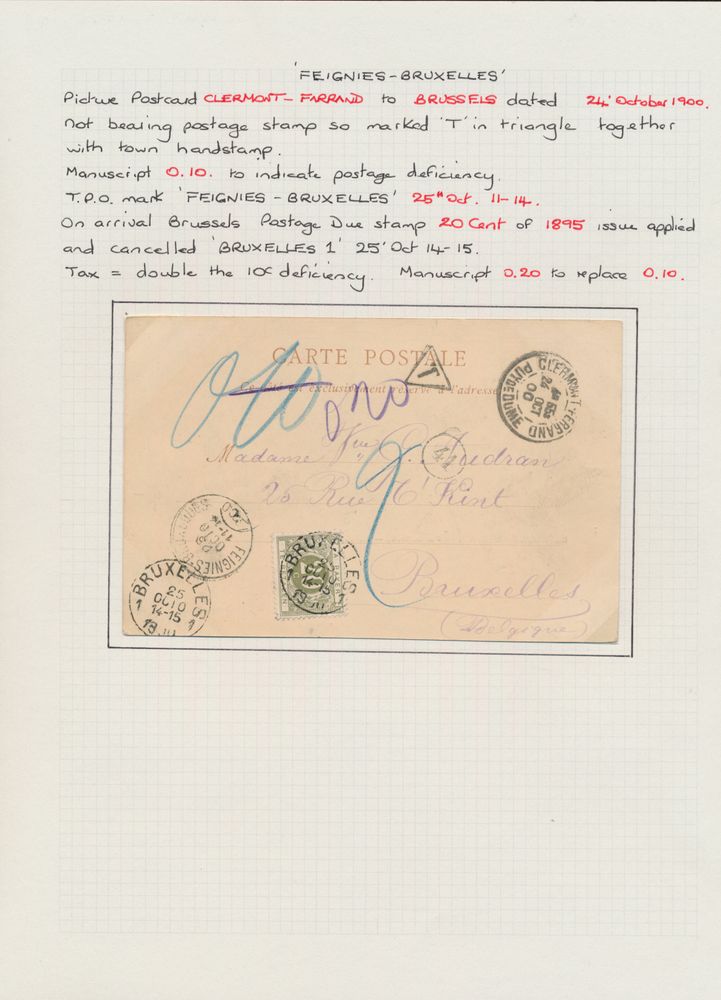 'FEIGNIES-BRUXELLES'
Picture Postcard CLERMONT-FARRAND to BRUSSELS dated 24' October 1900.
Not bearing postage stamp so marked 'T' in triangle together
with town handstamp.
Manuscript 0.10. to indicate postage deficiency.
T.P.O. mark 'FEIGNIES-BRUXELLES' 25th Oct. 11-14.
On arrival Brussels Postage Due stamp 20 Cent of 1895 issue applied
and cancelled 'BRUXELLES 1' 25' Oct 14-15.
Tax = double the 10c deficiency. Manuscript 0.20 to replace 0.10.
CARTE POSTALE
T
Ce côté est exclusivement réservé à l'adresse
010
0,20
CLERMONT-FERRAND
24 OCT 00
PUY DE DOME
Madame Vve
25 Rue T'Kint
Bruxelles
(Belgique)
FEIGNIES-BRUXELLES
BRUXELLES
25
OCTO
14-15
1 1
BRUXELLES
20